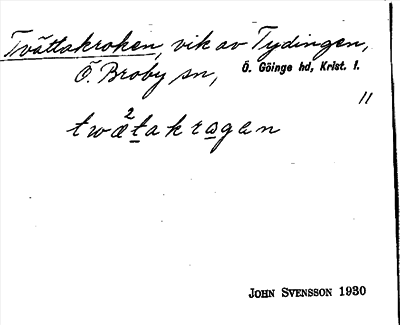 Tvättakroken, vik av Tydingen,
Ö. Broby sn, Ö. Göinge hd, Krist. l.
11
2
twætakragan
JOHN SVENSSON 1930